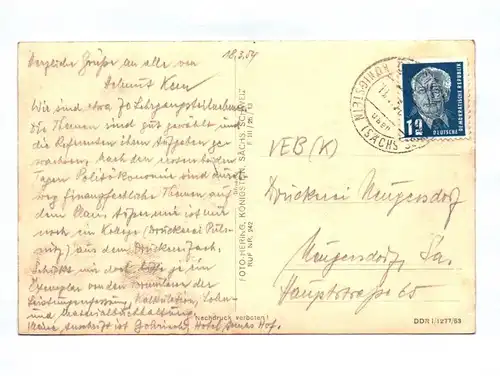 18.3.54
Herzliche Grüße an alle von
Helmut Kern
Wir sind etwa 70 Lehrgangsteilnehmer.
Die Themen sind gut gewählt und
die Referenten ihren Aufgaben ge-
wachsen. Nach den ersten beiden
Tagen Politökonomie sind durch-
weg Themen auf
dem Plan. Außer mir ist nur
noch ein Kollege (Druckerei
) aus dem Druckereifach.
Schickt mir doch bitte je ein
Exemplar von den Vordrucken der
Leistungserfassung, Kalkulation, Lohn-
und Materialbuchhaltung.
Meine Anschrift ist Gohrisch, Hotel Hof.
FOTO-HERING, KÖNIGSTEIN, SÄCHS. SCHWEIZ
RUF NR. 242
Nachdruck verboten!
KÖNIGSTEIN
(SÄCHS
12
DEUTSCHE
DEMOKRATISCHE REPUBLIK
VEB (K)
Druckerei Neugersdorf
Neugersdorf, Sa.
Hauptstrasse 65
DDR I/1277/53